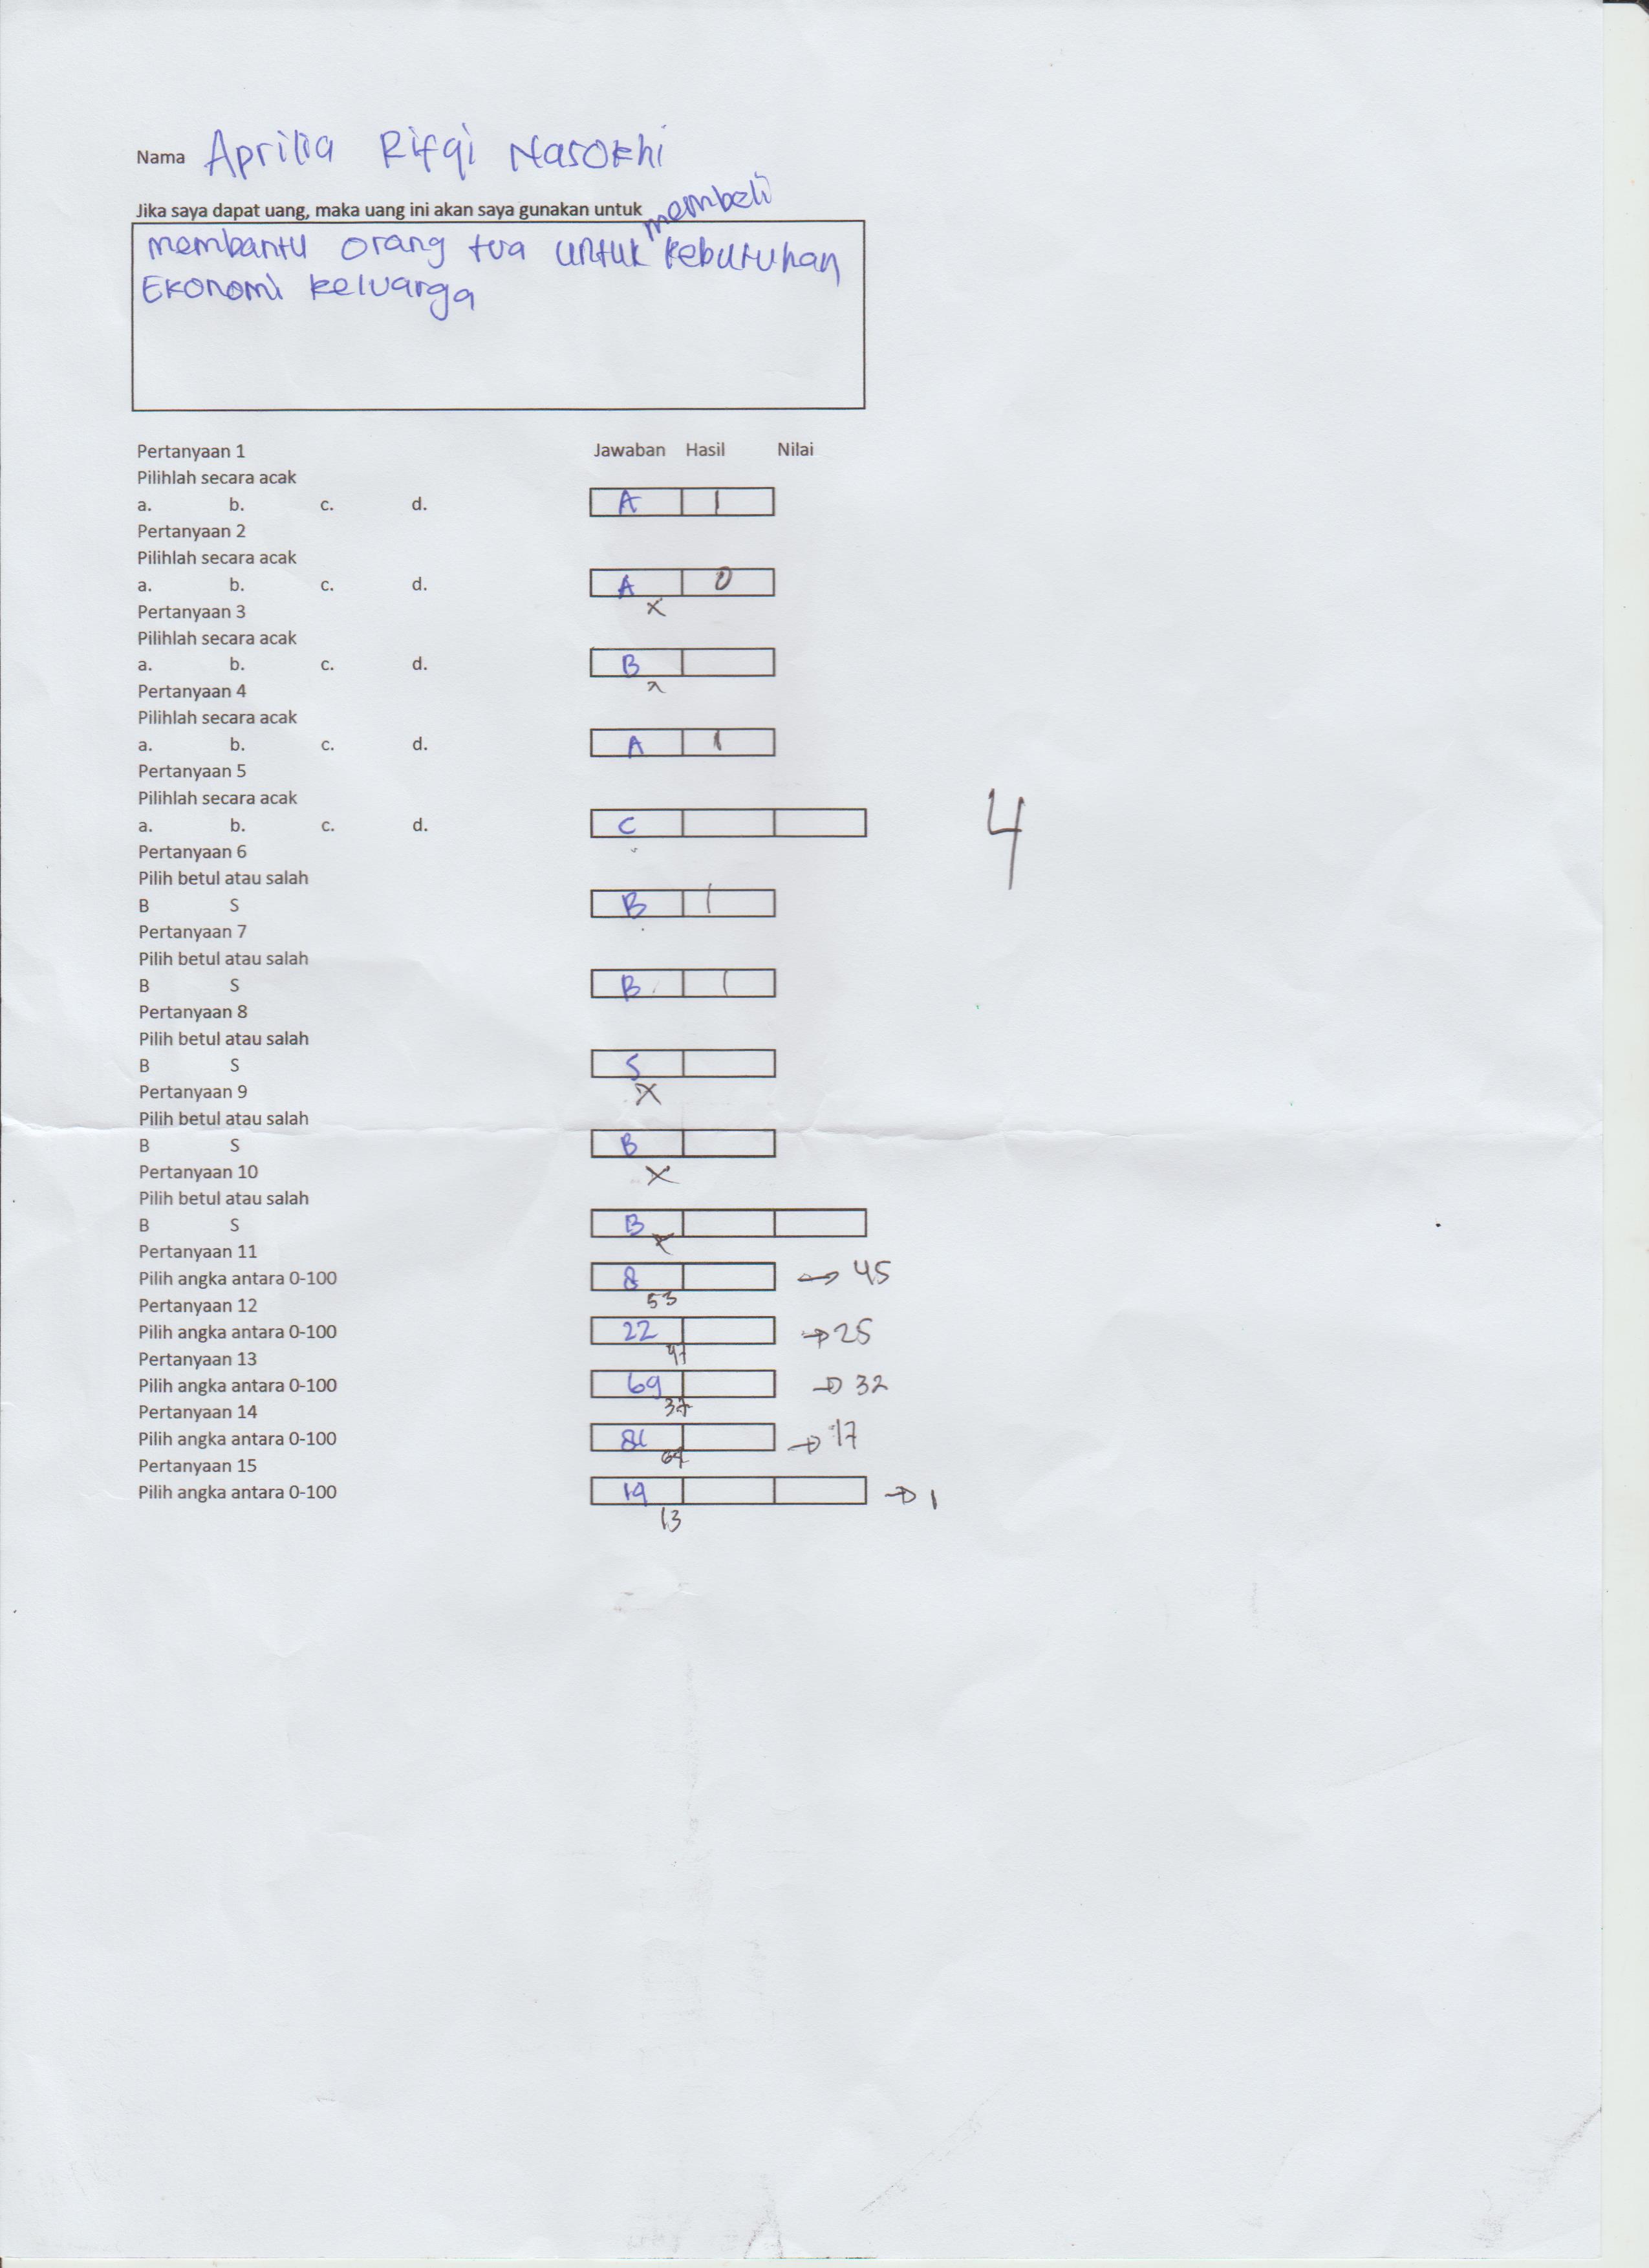 Nama Aprilia Rifqi Nasokhi
Jika saya dapat uang, maka uang ini akan saya gunakan untuk
membeli
membantu orang tua untuk kebutuhan
Ekonomi keluarga
Pertanyaan 1 Jawaban Hasil Nilai
Pilihlah secara acak
a. b. c. d. A 1
Pertanyaan 2
Pilihlah secara acak
a. b. c. d. A 0
Pertanyaan 3 x
Pilihlah secara acak
a. b. c. d. B
Pertanyaan 4
Pilihlah secara acak
a. b. c. d. A 1
Pertanyaan 5
Pilihlah secara acak
a. b. c. d. C 4
Pertanyaan 6
Pilih betul atau salah
B S B 1
Pertanyaan 7
Pilih betul atau salah
B S B 1
Pertanyaan 8
Pilih betul atau salah
B S S
Pertanyaan 9 x
Pilih betul atau salah
B S B
Pertanyaan 10 x
Pilih betul atau salah
B S B
Pertanyaan 11 x
Pilih angka antara 0-100 8 → 45
Pertanyaan 12 53
Pilih angka antara 0-100 22 → 25
Pertanyaan 13
Pilih angka antara 0-100 69 → 32
Pertanyaan 14 37
Pilih angka antara 0-100 81 → 17
Pertanyaan 15 64
Pilih angka antara 0-100 19 → 1
13